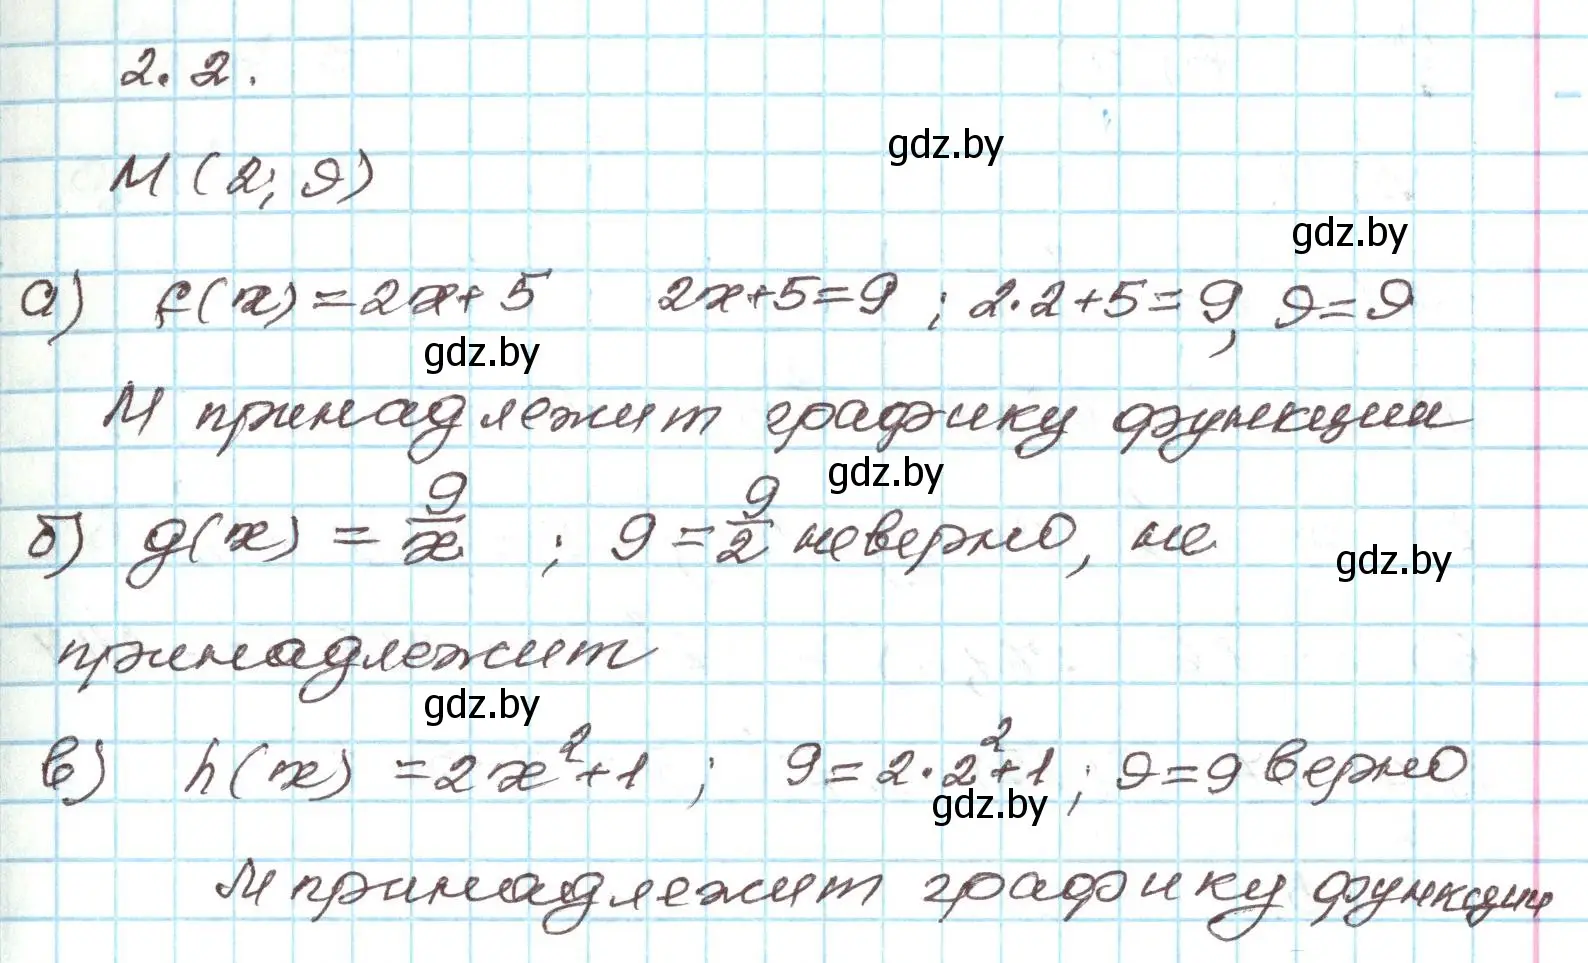 2.2.
gdz.by
M (2; 9)
gdz.by
а) f(x) = 2x + 5   2x+5=9 ; 2·2+5=9, 9=9
gdz.by
М принадлежит графику функции
gdz.by
б) g(x) = 9/x ; 9 = 9/2 неверно, не
gdz.by
принадлежит
gdz.by
в) h(x) = 2x²+1 ; 9=2·2²+1 ; 9=9 верно
gdz.by
М принадлежит графику функции